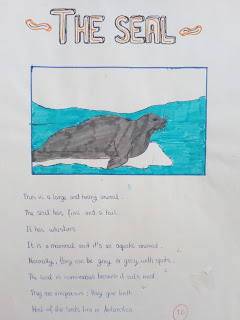 THE SEAL
This is a large and heavy animal.
The seal has fins and a tail.
It has whiskers
It is a mammal and it's an aquatic animal.
Normally, they can be gray or gray with spots.
The seal is carnivorous because it eats meat.
They are viviparous: they give birth.
Most of the seals live in Antarctica
10